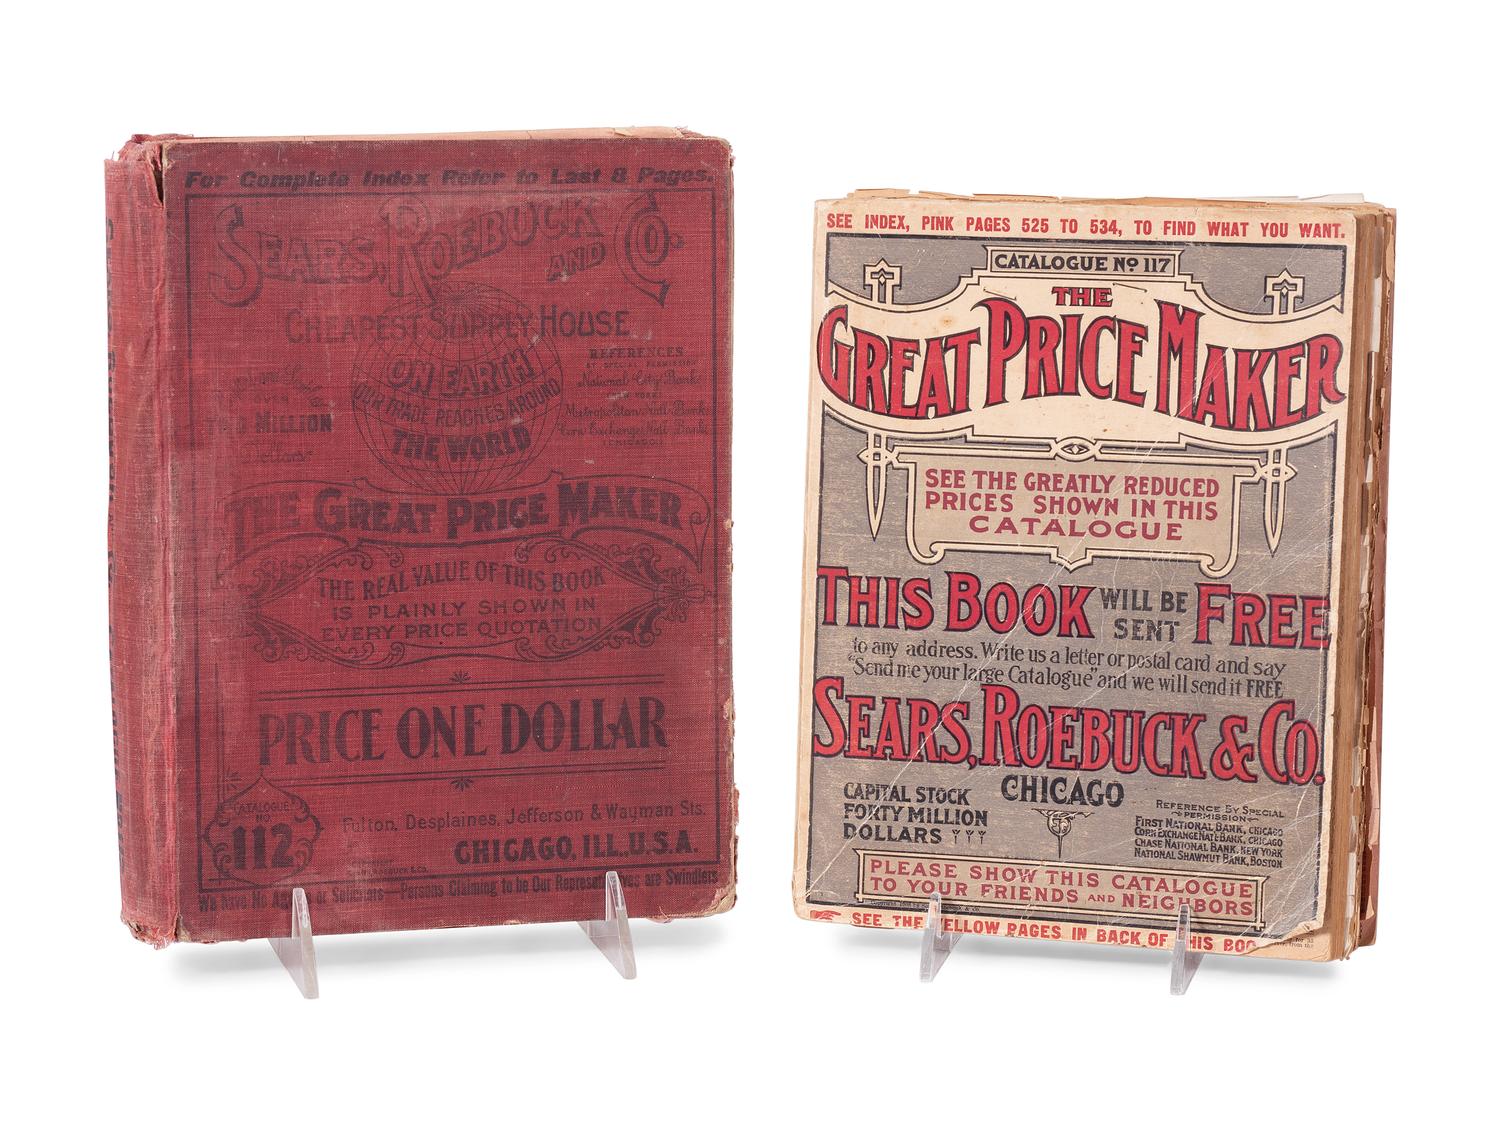 For Complete Index Refer to Last 8 Pages.
SEARS, ROEBUCK AND CO.
CHEAPEST SUPPLY HOUSE
ON EARTH
OUR TRADE REACHES AROUND
THE WORLD
REFERENCES
National City Bank
NEW YORK
Metropolitan Nat'l Bank
Corn Exchange Nat'l Bank
CHICAGO
OVER
MILLION
Dollars
THE GREAT PRICE MAKER
THE REAL VALUE OF THIS BOOK
IS PLAINLY SHOWN IN
EVERY PRICE QUOTATION
PRICE ONE DOLLAR
CATALOGUE
NO.
112
Fulton, Desplaines, Jefferson & Wayman Sts.
CHICAGO, ILL., U.S.A.
We have No or Solicitors—Persons Claiming to be Our are Swindlers
SEE INDEX, PINK PAGES 525 TO 534, TO FIND WHAT YOU WANT.
CATALOGUE No 117
THE
GREAT PRICE MAKER
SEE THE GREATLY REDUCED
PRICES SHOWN IN THIS
CATALOGUE
THIS BOOK WILL BE SENT FREE
to any address. Write us a letter or postal card and say
"Send me your large Catalogue" and we will send it FREE
SEARS, ROEBUCK & CO.
CHICAGO
CAPITAL STOCK
FORTY MILLION
DOLLARS
REFERENCE BY SPECIAL
PERMISSION
FIRST NATIONAL BANK, CHICAGO
CORN EXCHANGE NAT'L BANK, CHICAGO
CHASE NATIONAL BANK, NEW YORK
NATIONAL SHAWMUT BANK, BOSTON
PLEASE SHOW THIS CATALOGUE
TO YOUR FRIENDS AND NEIGHBORS
SEE THE YELLOW PAGES IN BACK OF THIS